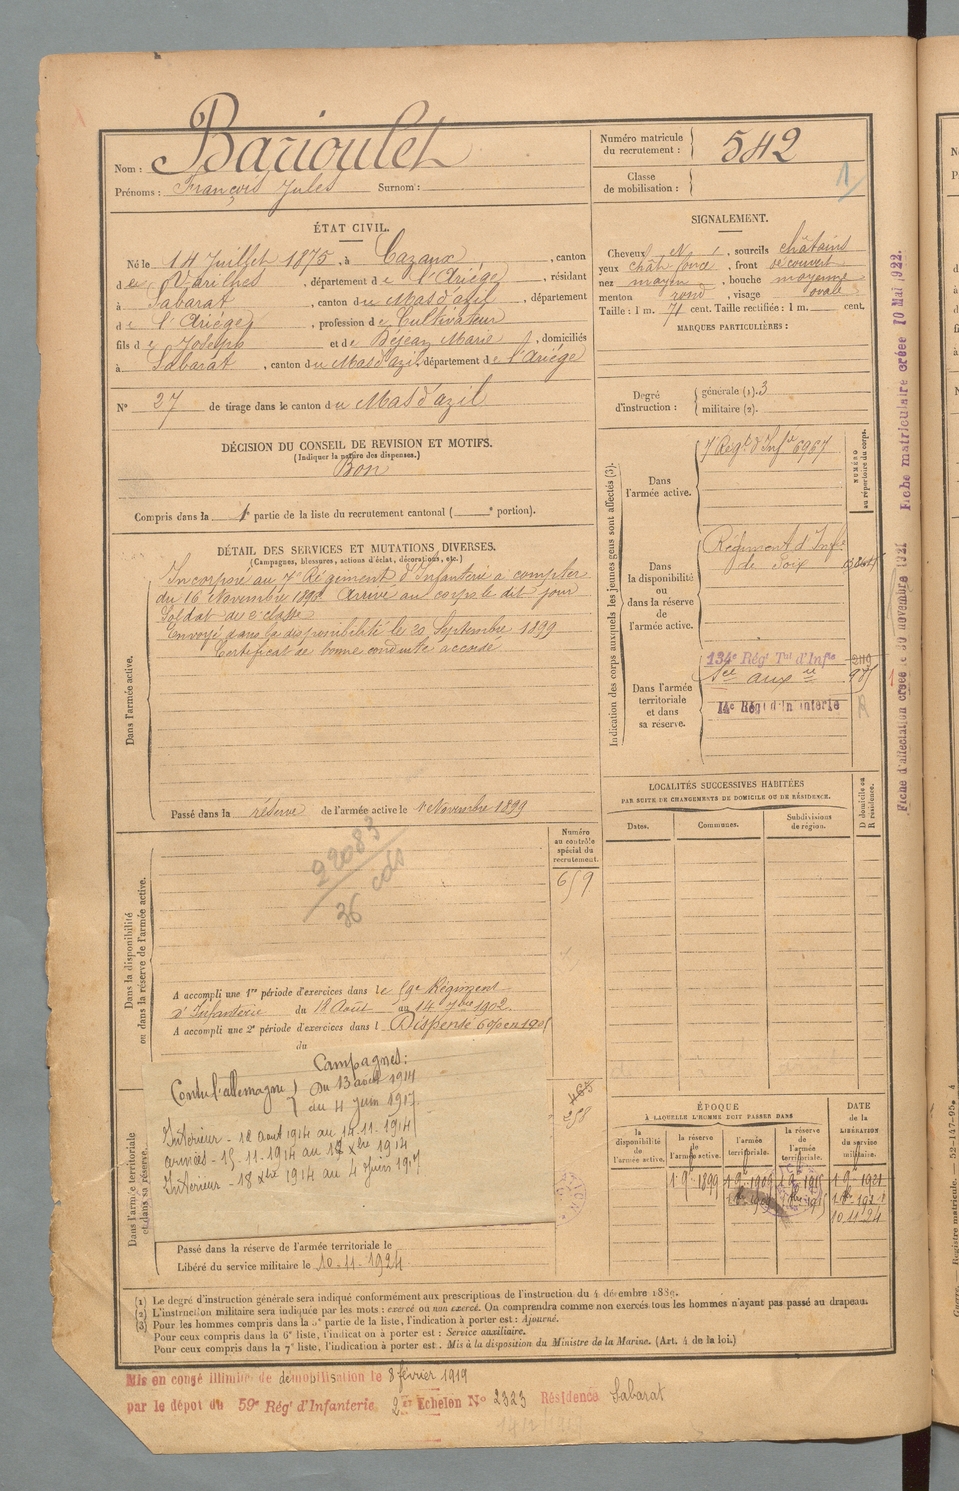 Nom : Barioulet
Prénoms : François Jules Surnom :
Numéro matricule du recrutement : 542
Classe de mobilisation :
1
ÉTAT CIVIL.
Né le 14 Juillet 1875, à Cazaux, canton
de Varilhes, département de l'Ariége, résidant
à Sabarat, canton du Mas d'azil, département
de l'Ariége, profession de Cultivateur
fils de Joseph et de Déjean Marie, domiciliés
à Sabarat, canton du Mas d'azil, département de l'Ariége
N° 27 de tirage dans le canton du Mas d'azil
SIGNALEMENT.
Cheveux N, sourcils châtains
yeux chât. foncé, front découvert
nez moyen, bouche moyenne
menton rond, visage ovale
Taille : 1 m. 71 cent. Taille rectifiée : 1 m. cent.
MARQUES PARTICULIÈRES :
Degré d'instruction : générale (1). 3
militaire (2).
DÉCISION DU CONSEIL DE REVISION ET MOTIFS.
(Indiquer la nature des dispenses.)
Bon
Compris dans la 1e partie de la liste du recrutement cantonal ( e portion).
DÉTAIL DES SERVICES ET MUTATIONS DIVERSES.
(Campagnes, blessures, actions d'éclat, décorations, etc.)
Dans l'armée active.
Incorporé au 7e Régiment d'Infanterie à compter
du 16 Novembre 1896 Arrivé au corps le dit jour
Soldat de 2e classe
Envoyé dans la disponibilité le 20 Septembre 1899
Certificat de bonne conduite accordé
Passé dans la réserve de l'armée active le 1 Novembre 1899
Indication des corps auxquels les jeunes gens sont affectés (3).
NUMÉRO au répertoire du corps.
Dans l'armée active.
7e Régt d'Infie 6967
Dans la disponibilité ou dans la réserve de l'armée active.
Régiment d'Infie
de Foix
Dans l'armée territoriale et dans sa réserve.
134e Régt Tal d'Infie
Sce auxre 985
14e Régt d'Infanterie
LOCALITÉS SUCCESSIVES HABITÉES
PAR SUITE DE CHANGEMENTS DE DOMICILE OU DE RÉSIDENCE.
Dates.
Communes.
Subdivisions de région.
D domicile ou R résidence.
Dans la disponibilité ou dans la réserve de l'armée active.
Numéro au contrôle spécial du recrutement.
659
22083
36 cols
A accompli une 1re période d'exercices dans le 59e Régiment
d'Infanterie du 18 Août au 14 7bre 1902.
A accompli une 2e période d'exercices dans l Dispensé 6% en 1905
du
Dans l'armée territoriale et dans sa réserve.
Campagnes :
Contre l'allemagne } Du 13 août 1914
au 4 juin 1917.
Intérieur - 12 aout 1914 au 14-11-1914
armées - 15-11-1914 au 17 Xbre 1914
Intérieur - 18 Xbre 1914 au 4 juin 1917
465
258
Passé dans la réserve de l'armée territoriale le
Libéré du service militaire le 10-11-1924
ÉPOQUE
À LAQUELLE L'HOMME DOIT PASSER DANS
DATE de la LIBÉRATION du service militaire.
la disponibilité de l'armée active.
la réserve de l'armée active.
l'armée territoriale.
la réserve de l'armée territoriale.
1 9 1899
1 9 1921
10 11 24
(1) Le degré d'instruction générale sera indiqué conformément aux prescriptions de l'instruction du 4 décembre 1889.
(2) L'instruction militaire sera indiquée par les mots : exercé ou non exercé. On comprendra comme non exercés tous les hommes n'ayant pas passé au drapeau.
(3) Pour les hommes compris dans la 5e partie de la liste, l'indication à porter est : Ajourné.
Pour ceux compris dans la 6e liste, l'indication à porter est : Service auxiliaire.
Pour ceux compris dans la 7e liste, l'indication à porter est : Mis à la disposition du Ministre de la Marine. (Art. 4 de la loi.)
Mis en congé illimité de démobilisation le 8 février 1919
par le dépôt du 59e Régt d'Infanterie 2e Echelon N° 2323 Résidence Sabarat
Fiche d'affectation créée le 30 novembre 1921 Fiche matriculaire créée 10 Mai 1922.
Registre matricule. — 52-147-95. 4